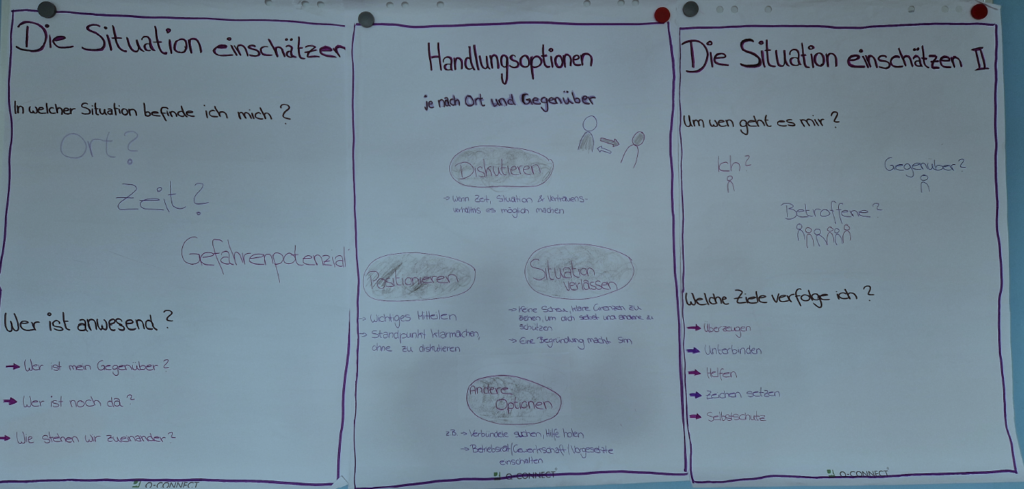 Die Situation einschätzen
In welcher Situation befinde ich mich?
Ort?
Zeit?
Gefahrenpotenzial
Wer ist anwesend?
→ Wer ist mein Gegenüber?
→ Wer ist noch da?
→ Wie stehen wir zueinander?
LO-CONNECT
Handlungsoptionen
je nach Ort und Gegenüber
Diskutieren
→ Wenn Zeit, Situation & Vertrauens-
verhältnis es möglich machen
Positionieren
→ Wichtiges Mitteilen
→ Standpunkt klarmachen,
ohne zu diskutieren
Situation
verlassen
→ Keine Scheu, klare Grenzen zu
ziehen, um dich selbst und andere zu
schützen
→ Eine Begründung macht Sinn
Andere
Optionen
z.B. → Verbündete suchen, Hilfe holen
→ Betriebsrat/Gewerkschaft/Vorgesetzte
einschalten
LO-CONNECT
Die Situation einschätzen II
Um wen geht es mir?
Ich?
Gegenüber?
Betroffene?
Welche Ziele verfolge ich?
→ Überzeugen
→ Unterbinden
→ Helfen
→ Zeichen setzen
→ Selbstschutz
LO-CONNECT